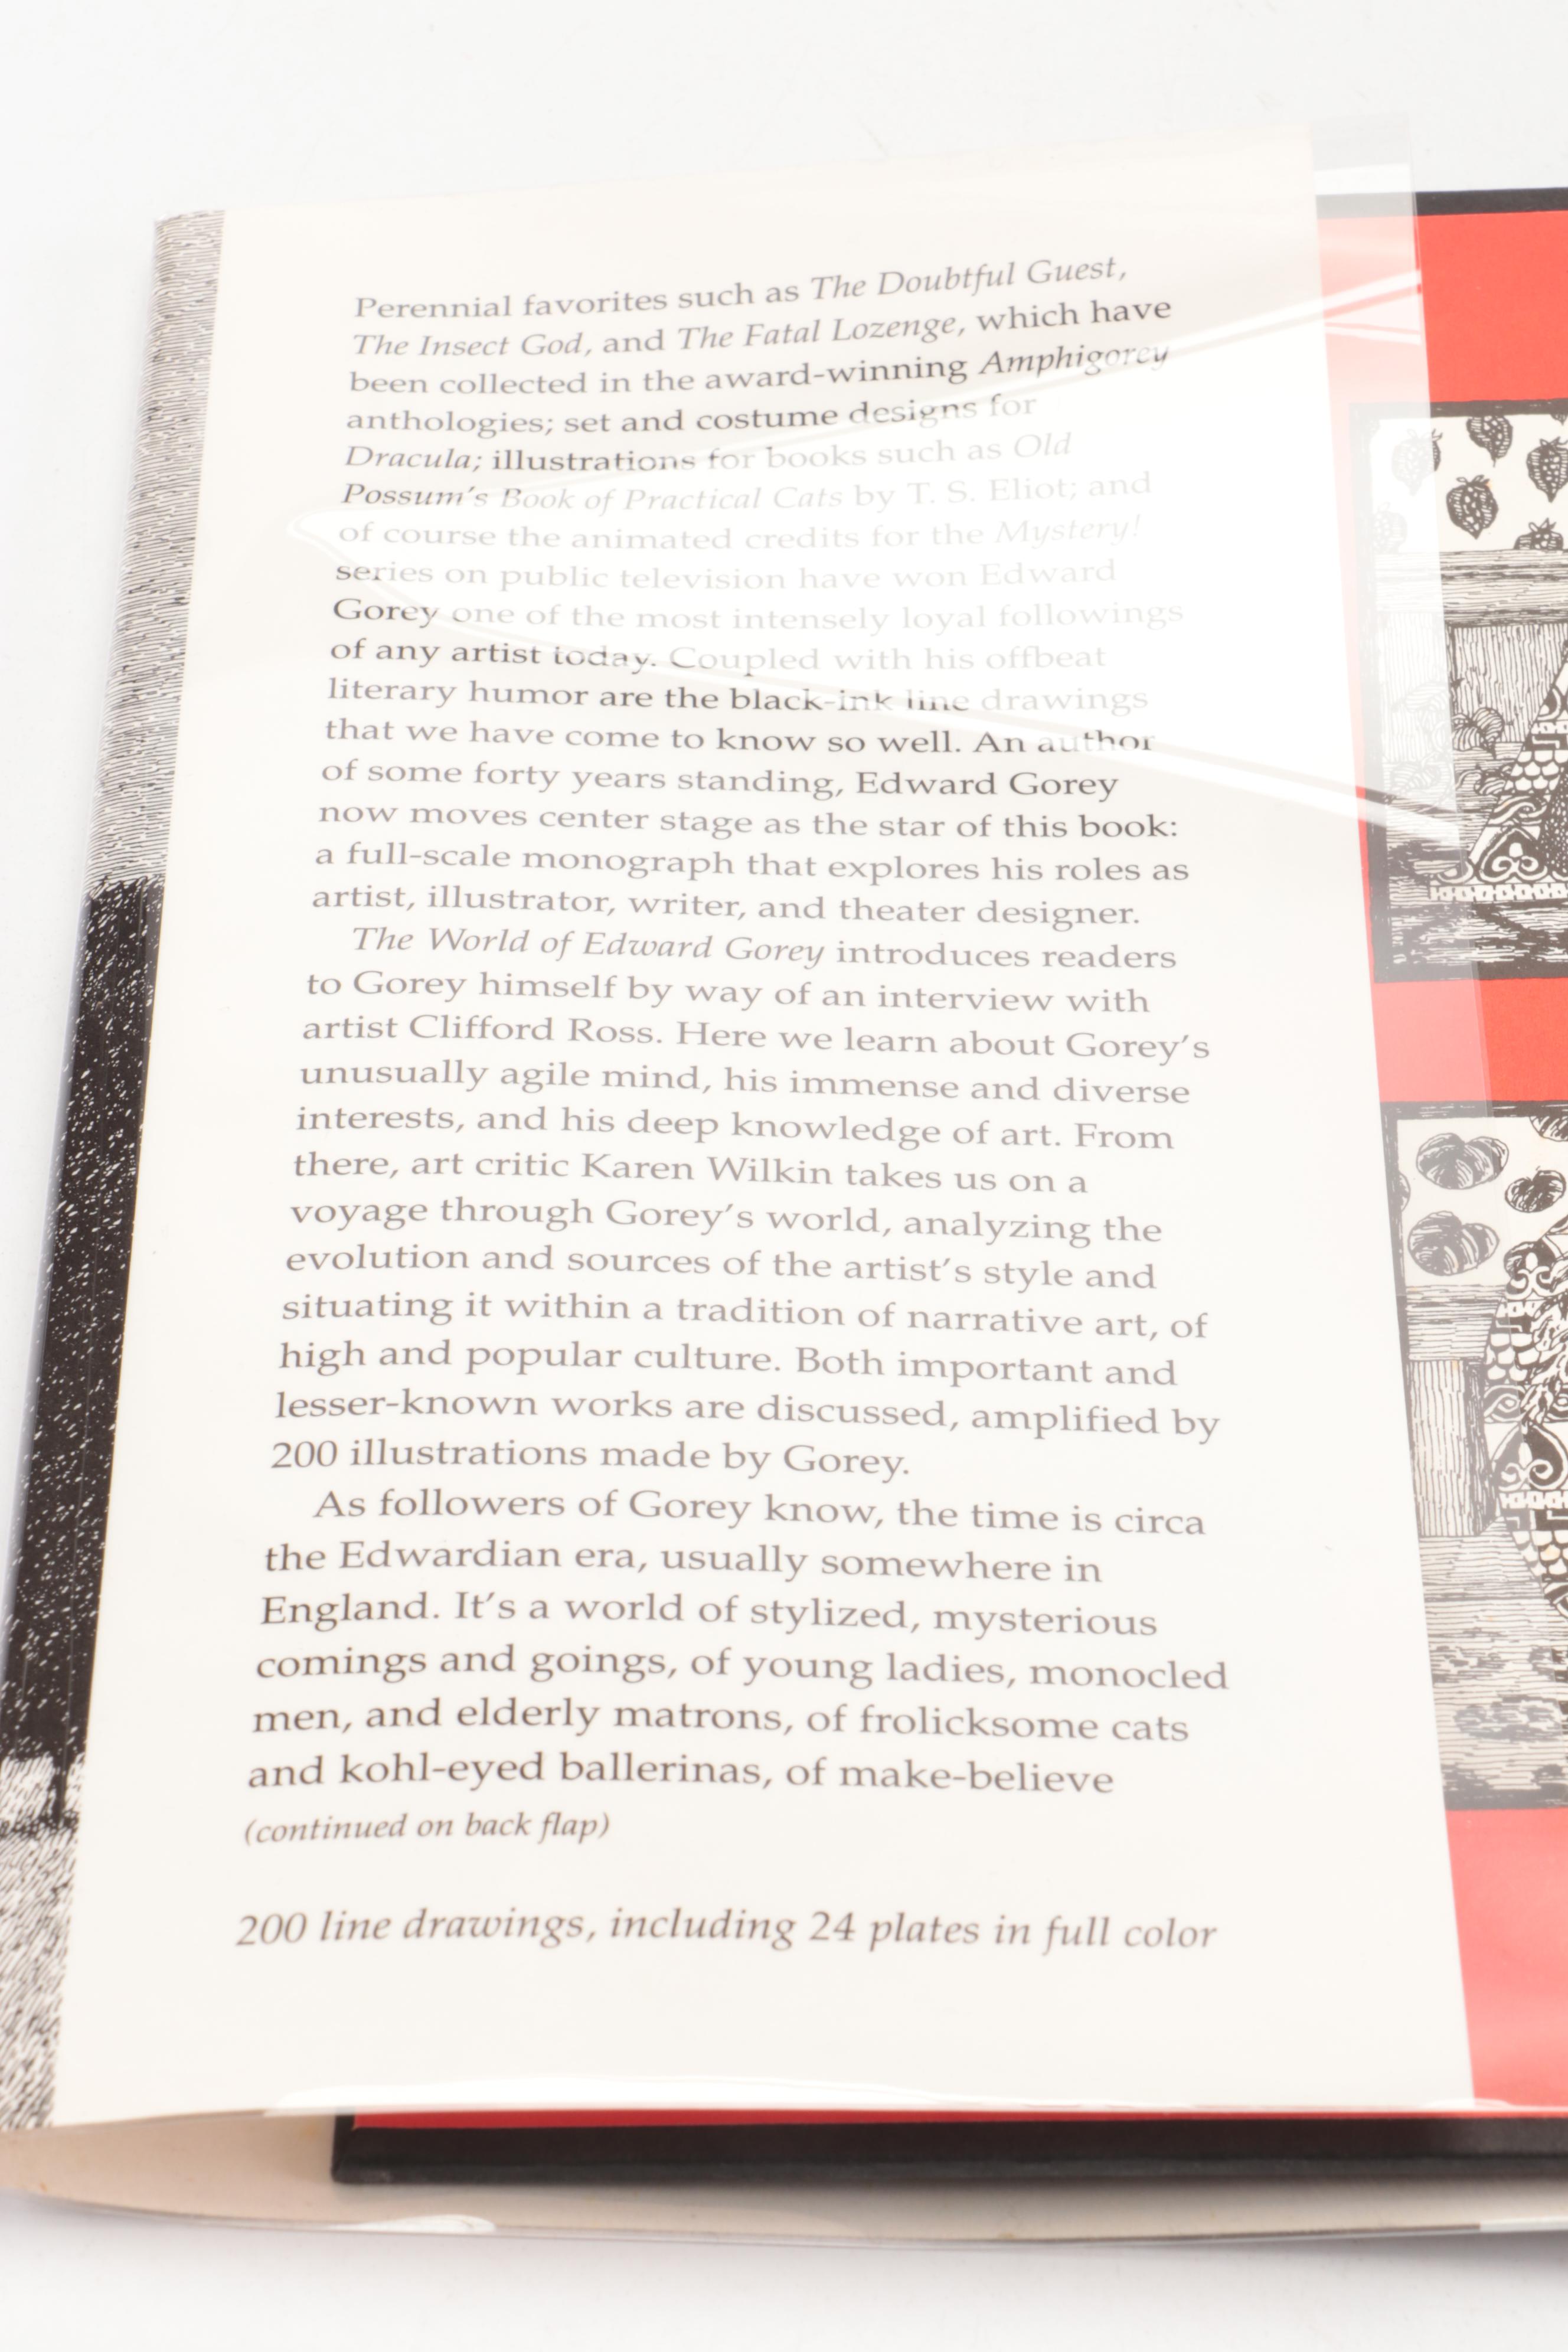 Perennial favorites such as The Doubtful Guest,
The Insect God, and The Fatal Lozenge, which have
been collected in the award-winning Amphigorey
anthologies; set and costume designs for
Dracula; illustrations for books such as Old
Possum's Book of Practical Cats by T. S. Eliot; and
of course the animated credits for the Mystery!
series on public television have won Edward
Gorey one of the most intensely loyal followings
of any artist today. Coupled with his offbeat
literary humor are the black-ink line drawings
that we have come to know so well. An author
of some forty years standing, Edward Gorey
now moves center stage as the star of this book:
a full-scale monograph that explores his roles as
artist, illustrator, writer, and theater designer.
The World of Edward Gorey introduces readers
to Gorey himself by way of an interview with
artist Clifford Ross. Here we learn about Gorey's
unusually agile mind, his immense and diverse
interests, and his deep knowledge of art. From
there, art critic Karen Wilkin takes us on a
voyage through Gorey's world, analyzing the
evolution and sources of the artist's style and
situating it within a tradition of narrative art, of
high and popular culture. Both important and
lesser-known works are discussed, amplified by
200 illustrations made by Gorey.
As followers of Gorey know, the time is circa
the Edwardian era, usually somewhere in
England. It's a world of stylized, mysterious
comings and goings, of young ladies, monocled
men, and elderly matrons, of frolicksome cats
and kohl-eyed ballerinas, of make-believe
(continued on back flap)
200 line drawings, including 24 plates in full color